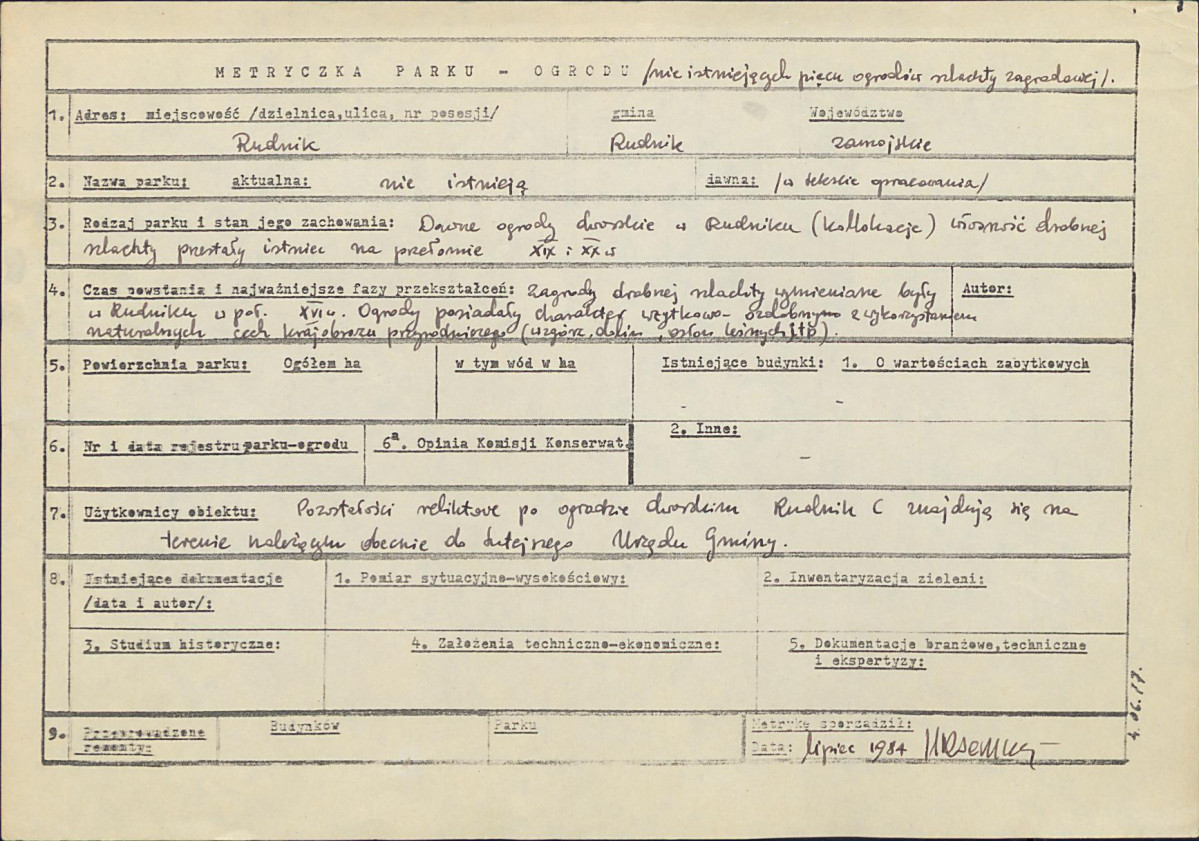 METRYCZKA PARKU - OGRODU /nie istniejących pięciu ogrodów szlachty zagrodowej/.
1. Adres: miejscowość /dzielnica,ulica, nr posesji/ gmina Województwo
Rudnik Rudnik zamojskie
2. Nazwa parku: aktualna: nie istnieją dawna: /w tekście opracowania/
3. Rodzaj parku i stan jego zachowania: Dawne ogrody dworskie w Rudniku (kollokacje) własność drobnej
szlachty przestały istnieć na przełomie XIX i XX w
4. Czas powstania i najważniejsze fazy przekształceń: Zagrody drobnej szlachty wymieniane były Autor:
w Rudniku w poł. XVI w. Ogrody posiadały charakter użytkowo-ozdobnym z wykorzystaniem
naturalnych cech krajobrazu przyrodniczego (wzgórz, dolin, osłon leśnych itp).
5. Powierzchnia parku: Ogółem ha w tym wód w ha Istniejące budynki: 1. O wartościach zabytkowych
- -
6. Nr i data rejestru parku-ogrodu 6a. Opinia Komisji Konserwat. 2. Inne:
-
7. Użytkownicy obiektu: Pozostałości reliktowe po ogrodzie dworskim Rudnik C znajdują się na
terenie należącym obecnie do tutejszego Urzędu Gminy.
8. Istniejące dokumentacje 1. Pomiar sytuacyjno-wysokościowy: 2. Inwentaryzacja zieleni:
/data i autor/:
3. Studium historyczne: 4. Założenia techniczno-ekonomiczne: 5. Dokumentacje branżowe,techniczne
i ekspertyzy:
9. Przeprowadzone Budynków Parku Metrykę sporządził:
remonty: Data: lipiec 1984